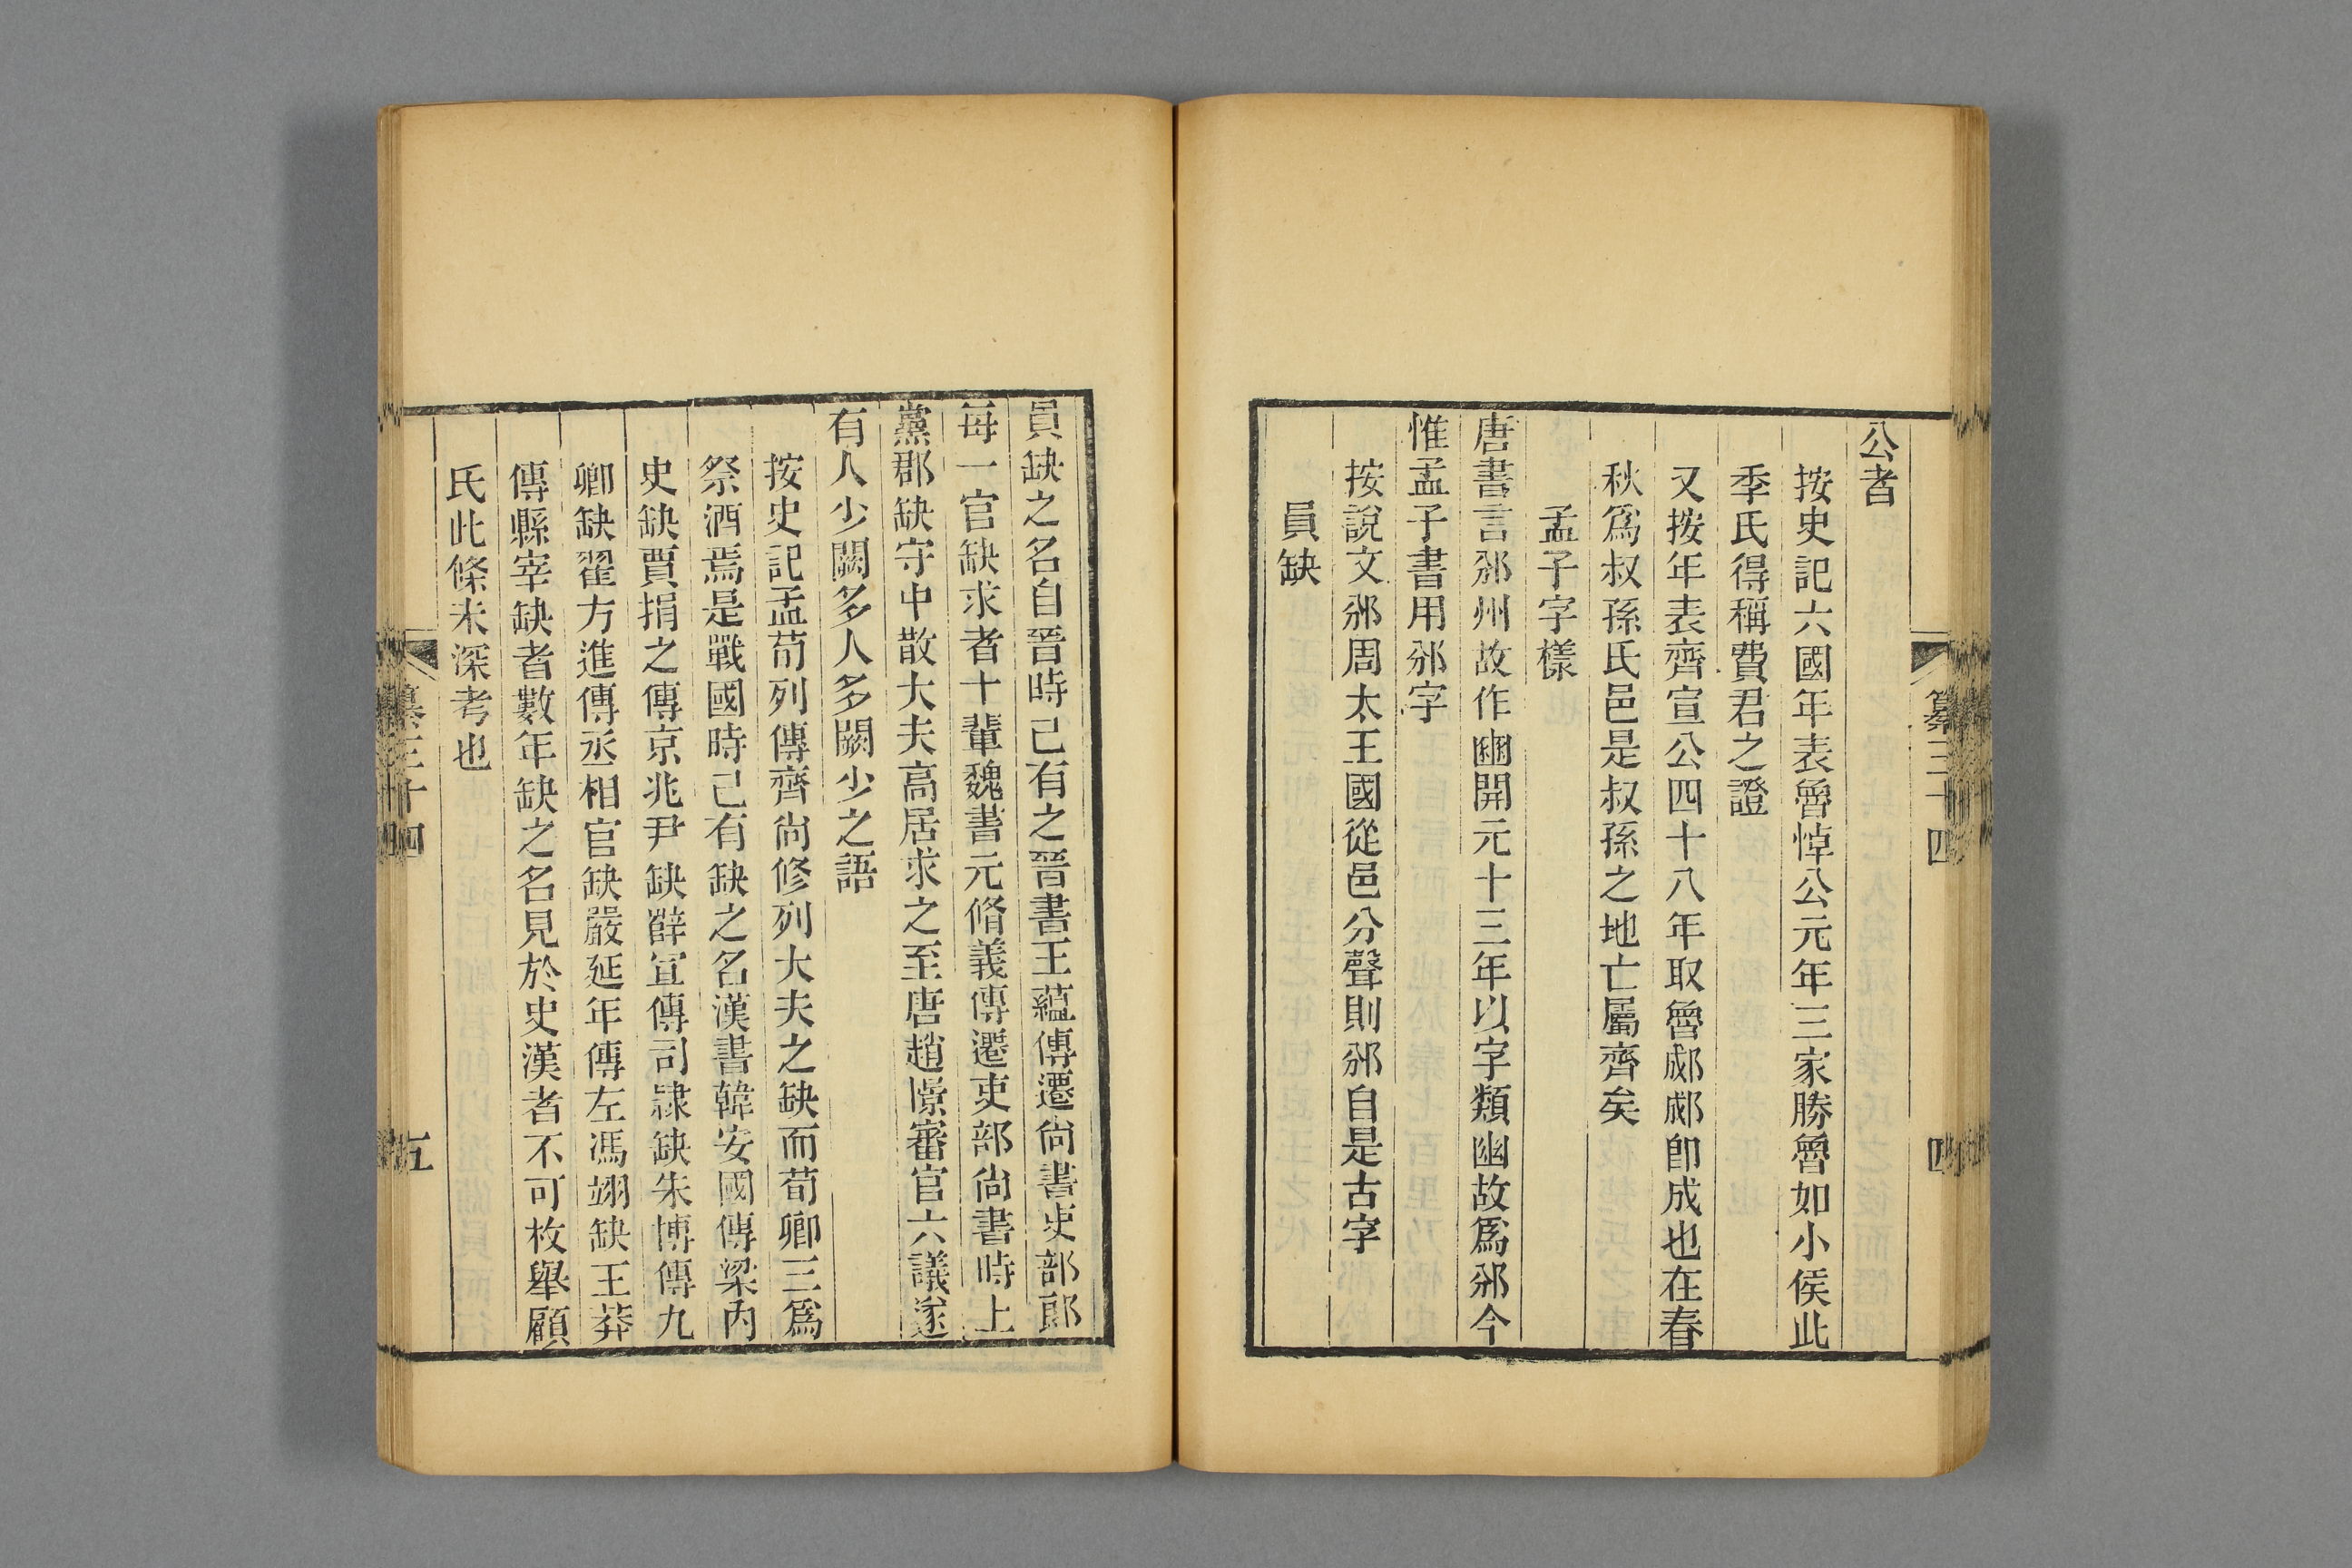 公者
按史記六國年表魯悼公元年三家勝魯如小侯此
季氏得稱費君之證
又按年表齊宣公四十八年取魯郕郕卽成也在春
秋爲叔孫氏邑是叔孫之地亡屬齊矣
孟子字樣
唐書言邠州故作豳開元十三年以字類幽故爲邠今
惟孟子書用邠字
按說文邠周太王國從邑分聲則邠自是古字
員缺
纂三十四
四
員缺之名自晉時已有之晉書王蘊傳遷尚書吏部郎
每一官缺求者十輩魏書元脩義傳遷吏部尚書時上
黨郡缺守中散大夫高居求之至唐趙憬審官六議遂
有人少闕多人多闕少之語
按史記孟荀列傳齊尚修列大夫之缺而荀卿三爲
祭酒焉是戰國時已有缺之名漢書韓安國傳梁內
史缺賈捐之傳京兆尹缺薛宣傳司隸缺朱博傳九
卿缺翟方進傳丞相官缺嚴延年傳左馮翊缺王莽
傳縣宰缺者數年缺之名見於史漢者不可枚舉顧
氏此條未深考也
纂三十四
五